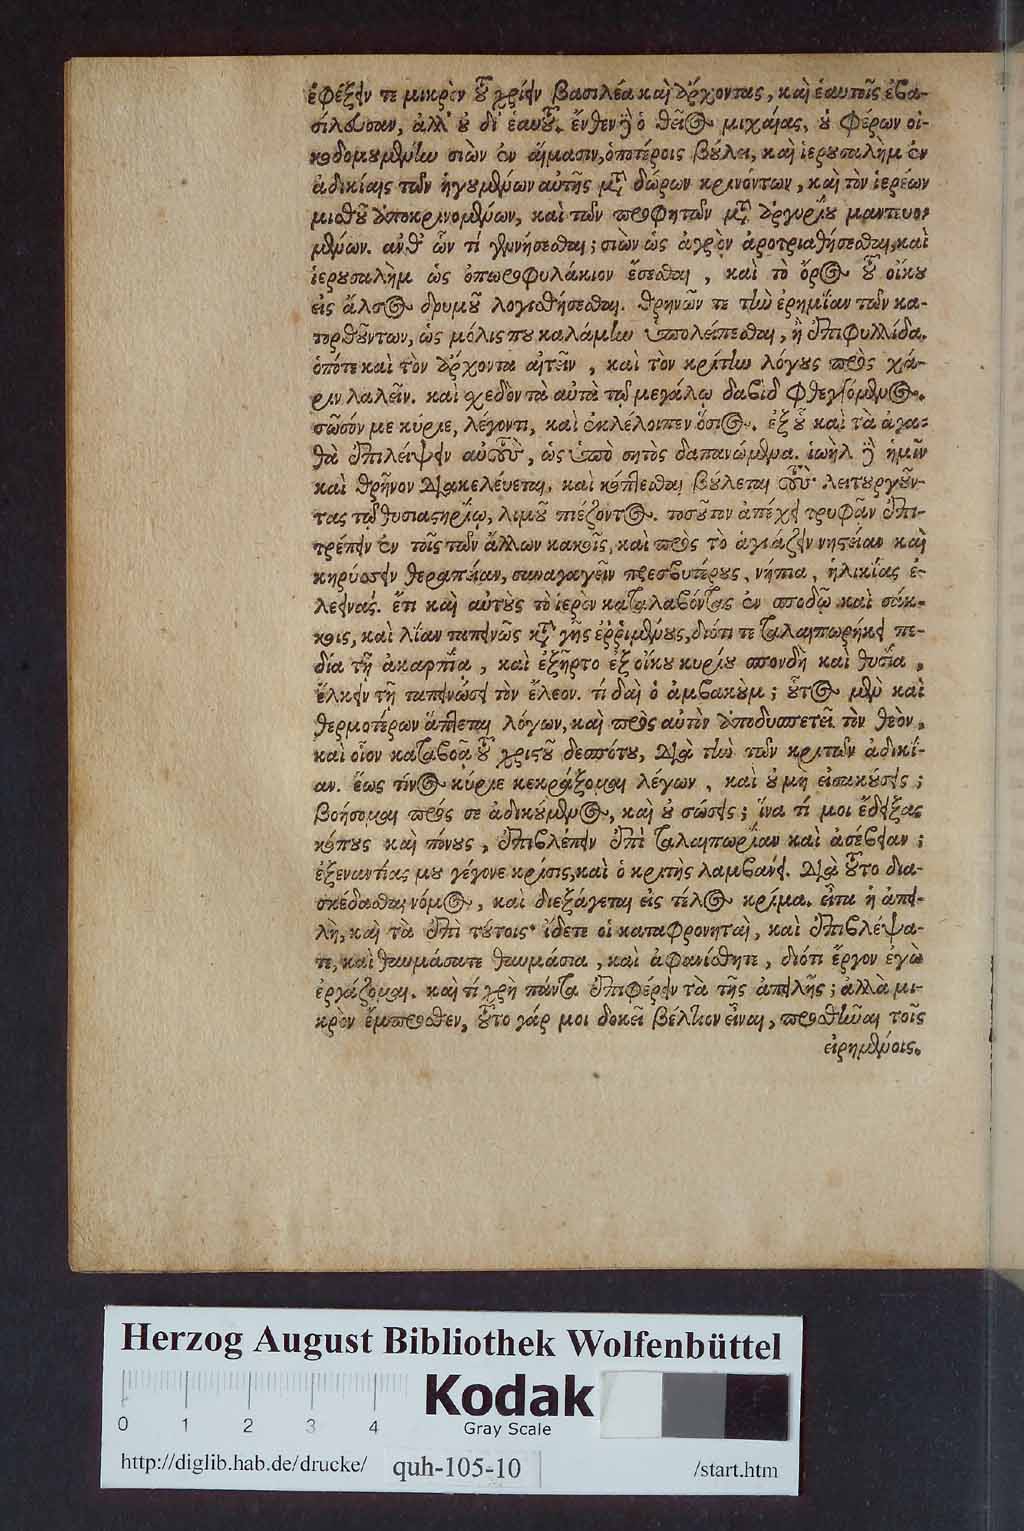 ἐφέξειν τε μικρὸν τοῦ χρίειν βασιλέα καὶ ἄρχοντας, καὶ ἑαυτοῖς ἐβα-
σίλευσαν, ἀλλ' οὐ δι' ἐμοῦ. ἔνθεν καὶ ὁ θεῖος μιχαίας, οὐ φέρων οἰ-
κοδομουμένην σιὼν ἐν αἵμασιν, ὁποτέροις βούλει, καὶ ἱερουσαλὴμ ἐν
ἀδικίαις τῶν ἡγουμένων αὐτῆς μετὰ δώρων κρινόντων, καὶ τὸν ἱερέων
μισθοῦ ἀποκρινομένων, καὶ τῶν προφητῶν μετὰ ἀργυρίου μαντευο-
μένων. ἀνθ' ὧν τί γενήσεσθαι; σιὼν ὡς ἀγρὸν ἀροτριαθήσεσθαι, καὶ
ἱερουσαλὴμ ὡς ὀπωροφυλάκιον ἔσεσθαι, καὶ τὸ ὄρος τοῦ οἴκου
εἰς ἄλσος δρυμοῦ λογισθήσεσθαι. θρηνῶν τε τὴν ἐρημίαν τῶν κα-
τορθούντων, ὡς μόλις που καλάμην ὑπολείπεσθαι, ἢ ἐπιφυλλίδα.
ὁπότε καὶ τὸν ἄρχοντα αἰτεῖν, καὶ τὸν κριτὴν λόγους πρὸς χά-
ριν λαλεῖν. καὶ σχεδὸν τὰ αὐτὰ τῷ μεγάλῳ δαβὶδ φθεγγόμενος.
σῶσόν με κύριε, λέγοντι, καὶ ἐκλέλοιπεν ὅσιος. ἐξ οὗ καὶ τὰ ἀγα-
θὰ ἐπιλείψειν αὐτοὺς, ὡς ὑπὸ σητὸς δαπανώμενα. ἰωὴλ καὶ ἡμῖν
καὶ θρῆνον διακελεύεται, καὶ κόπτεσθαι βούλεται τοὺς λειτουργοῦν-
τας τῷ θυσιαστηρίῳ, λιμοῦ πιέζοντος. τοσοῦτον ἀπέχει τρυφᾶν ἐπι-
τρέπειν ἐν τοῖς τῶν ἄλλων κακοῖς, καὶ πρὸς τὸ ἁγιάζειν νηστείαν καὶ
κηρύσσειν θεραπείαν, συναγαγεῖν πρεσβυτέρους, νήπια, ἡλικίας ἐ-
λεεινάς. ἔτι καὶ αὐτοὺς τὸ ἱερὸν καταλαβόντας ἐν σποδῷ καὶ σάκ-
κοις, καὶ λίαν ταπεινῶς κατὰ γῆς ἐῤῥιμμένους, διότι τεταλαιπωρήκει πε-
δία τῇ ἀκαρπίᾳ, καὶ ἐξῆρτο ἐξ οἴκου κυρίου σπονδὴ καὶ θυσία,
ἕλκειν τῇ ταπεινώσει τὸν ἔλεον. τί δαὶ ὁ ἀμβακούμ; οὗτος μὲν καὶ
θερμοτέρων ἅπτεται λόγων, καὶ πρὸς αὐτὸν ἀποδυσπετεῖ τὸν θεὸν,
καὶ οἷον καταβοᾷ τοῦ χριστοῦ δεσπότου, διὰ τὴν τῶν κριτῶν ἀδικί-
αν. ἕως τίνος κύριε κεκράξομαι λέγων, καὶ οὐ μὴ εἰσακούσεις;
βοήσομαι πρός σε ἀδικούμενος, καὶ οὐ σώσεις; ἵνα τί μοι ἔδειξας
κόπους καὶ πόνους, ἐπιβλέπειν ἐπὶ ταλαιπωρίαν καὶ ἀσέβειαν;
ἐξεναντίας μου γέγονε κρίσις, καὶ ὁ κριτὴς λαμβάνει. διὰ τοῦτο δια-
σκέδασται νόμος, καὶ διεξάγεται εἰς τέλος κρίμα. εἶτα ἡ ἀπει-
λὴ, καὶ τὰ ἐπὶ τούτοις· ἴδετε οἱ καταφρονηταὶ, καὶ ἐπιβλέψα-
τε, καὶ θαυμάσατε θαυμάσια, καὶ ἀφανίσθητε, διότι ἔργον ἐγὼ
ἐργάζομαι. καὶ τί χρὴ πάντα ἐπιφέρειν τὰ τῆς ἀπειλῆς; ἀλλὰ μι-
κρὸν ἔμπροσθεν, τοῦτο γάρ μοι δοκεῖ βέλτιον εἶναι, προσθεῖναι τοῖς
εἰρημένοις.
Herzog August Bibliothek Wolfenbüttel
Kodak
Gray Scale
0 1 2 3 4
http://diglib.hab.de/drucke/ quh-105-10 /start.htm